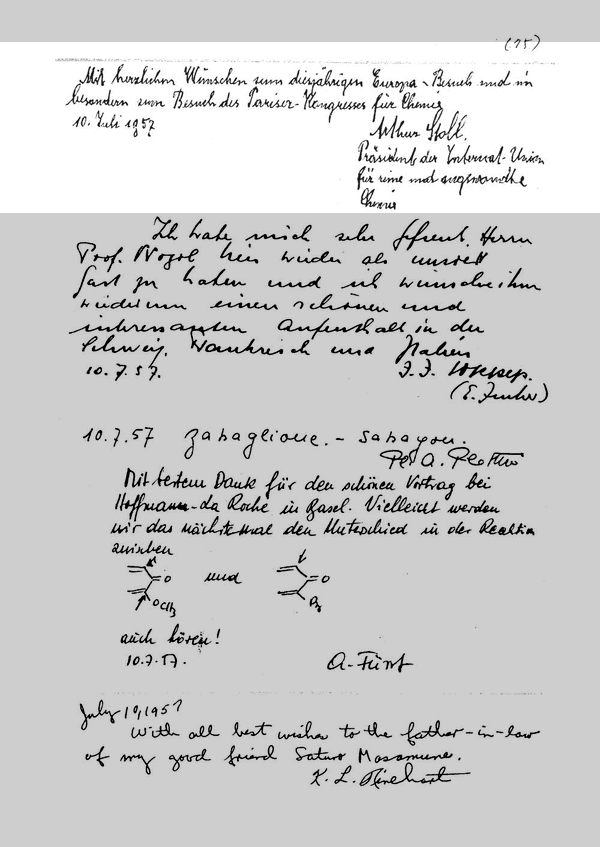 (75)
Mit herzlichen Wünschen zum diesjährigen Europa-Besuch und im
besondern zum Besuch des Pariser-Kongresses für Chemie
10. Juli 1957
Arthur Stoll.
Präsident der Internat. Union
für reine und angewandte
Chemie
Ich habe mich sehr gefreut, Herrn
Prof. Nozoe hier wieder als unsern
Gast zu haben und ich wünsche ihm
wiederum einen schönen und
interessanten Aufenthalt in der
Schweiz, Frankreich und Italien
10.7.57.
(E. Jucker)
10.7.57 Zabaglione. - Sabayon.
Pl. A. Plattner
Mit bestem Dank für den schönen Vortrag bei
Hoffmann-da Roche in Basel. Vielleicht werden
wir das nächste mal den Unterschied in der Reaktion
zwischen
O und O
OCH3
auch hören!
10.7.57.
A. Fürst
July 10, 1957
With all best wishes to the father-in-law
of my good friend Satoru Masamune.
K. L. Rinehart